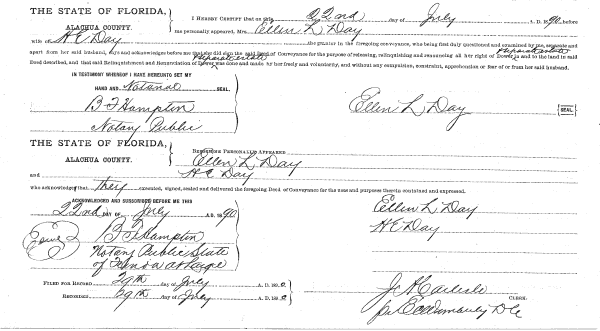 THE STATE OF FLORIDA,
ALACHUA COUNTY.
I HEREBY CERTIFY that on this 22nd day of July A. D. 1890 before
me personally appeared, Mrs. Ellen L Day
wife of H E Day the grantor in the foregoing conveyance, who being first duly questioned and examined by me, separate and
apart from her said husband, says and acknowledges before me she did sign the said Deed of Conveyance for the purpose of releasing, relinquishing and renouncing all her right of Dower separate estate in and to the land in said
Deed described, and that said Relinquishment and Renunciation of Dower separate estate was done and made by her freely and voluntarily, and without any compulsion, constraint, apprehension or fear of or from her said husband.
IN TESTIMONY WHEREOF I HAVE HEREUNTO SET MY
HAND AND Notarial SEAL.
B F Hampton
Notary Public
Ellen L Day SEAL
THE STATE OF FLORIDA,
ALACHUA COUNTY.
PERSONALLY APPEARED
Ellen L Day
and H E Day
who acknowledged that they executed, signed, sealed and delivered the foregoing Deed of Conveyance for the uses and purposes therein contained and expressed.
ACKNOWLEDGED AND SUBSCRIBED BEFORE ME THIS
22nd DAY OF July A. D. 1890
B F Hampton
Notary Public State
of Florida at Large
Ellen L Day
H E Day
FILED FOR RECORD 29th day of July A. D. 1890
RECORDED 29th day of July A. D. 1890
J A Carlisle CLERK.